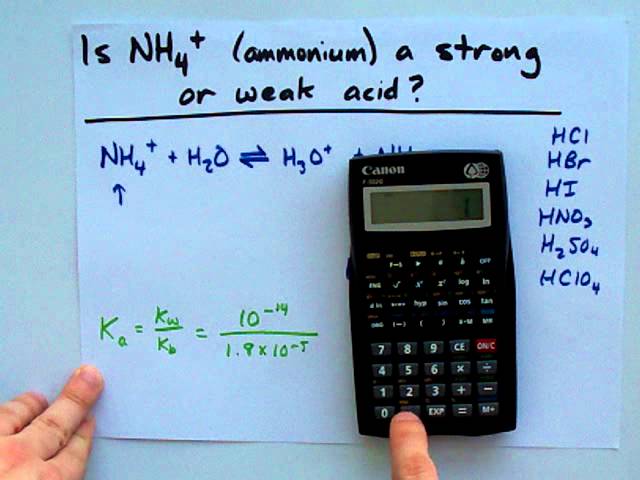 Is NH₄⁺ (ammonium) a strong
or weak acid?
NH₄⁺ + H₂O ⇌ H₃O⁺ + NH
↑
HCl
HBr
HI
HNO₃
H₂SO₄
HClO₄
Kₐ = Kw/Kb = 10⁻¹⁴/1.8×10⁻⁵
Canon
OFF
ENG √ x² log ln
hyp sin cos tan
(−) ( )
7 8 9 CE ON/C
4 5 6 × ÷
1 2 3 + −
0 EXP = M+